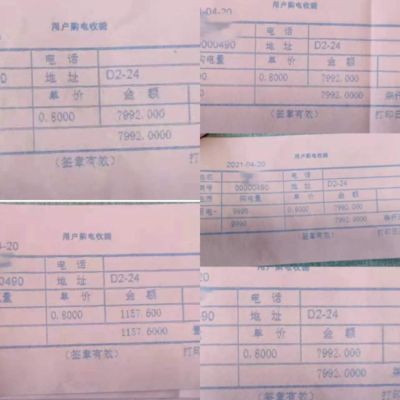 用户购电收据
电 话
90 地 址 D2-24
单 价 金 额
0.8000 7992.000
7992.0000
(签章有效) 打
-04-20
用户购电收据
电 话
0000490 地 址 D2-24
购电量 单 价 金 额
0.8000 7992.000
7992.0000
(签章有效) 打印日
用户购电收据
2021-04-20
电 话
00000490 地 址 D2-24
购电量 单 价 金 额
9990 0.8000 7992.000
9990 7992.0000
(签章有效) 打印日
用户购电收据
04-20
电 话
0490 地 址 D2-24
电量 单 价 金 额
0.8000 1157.600
1157.6000
(签章有效) 打印
用户购电收据
20
电 话
90 地 址 D2-24
单 价 金 额
0.8000 7992.000
7992.0000
(签章有效) 打印